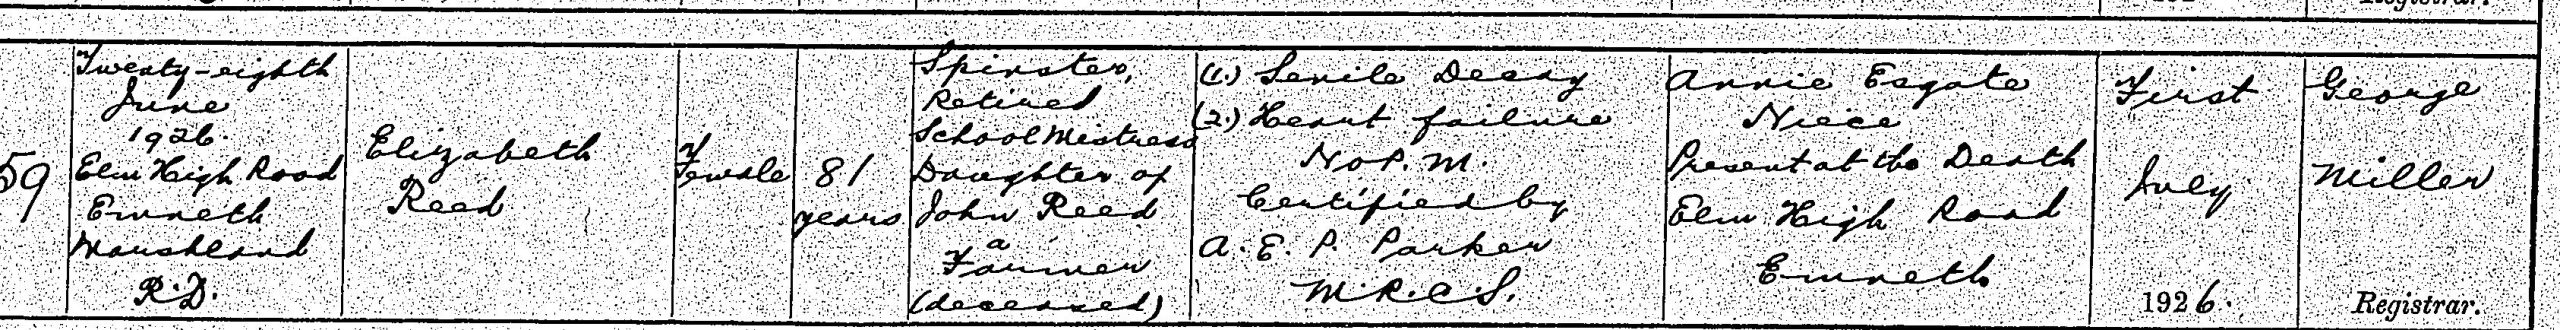 59
Twenty-eighth
June
1926.
Elm High Road
Emneth
Marshland
R.D.
Elizabeth
Reed
Female
81
years
Spinster,
Retired
School Mistress
Daughter of
John Reed
a
Farmer
(deceased)
(1.) Senile Decay
(2.) Heart failure
No P.M.
Certified by
A. E. P. Parker
M.R.C.S.
Annie Esgate
Niece
Present at the Death
Elm High Road
Emneth
First
July
1926.
George
Miller
Registrar.